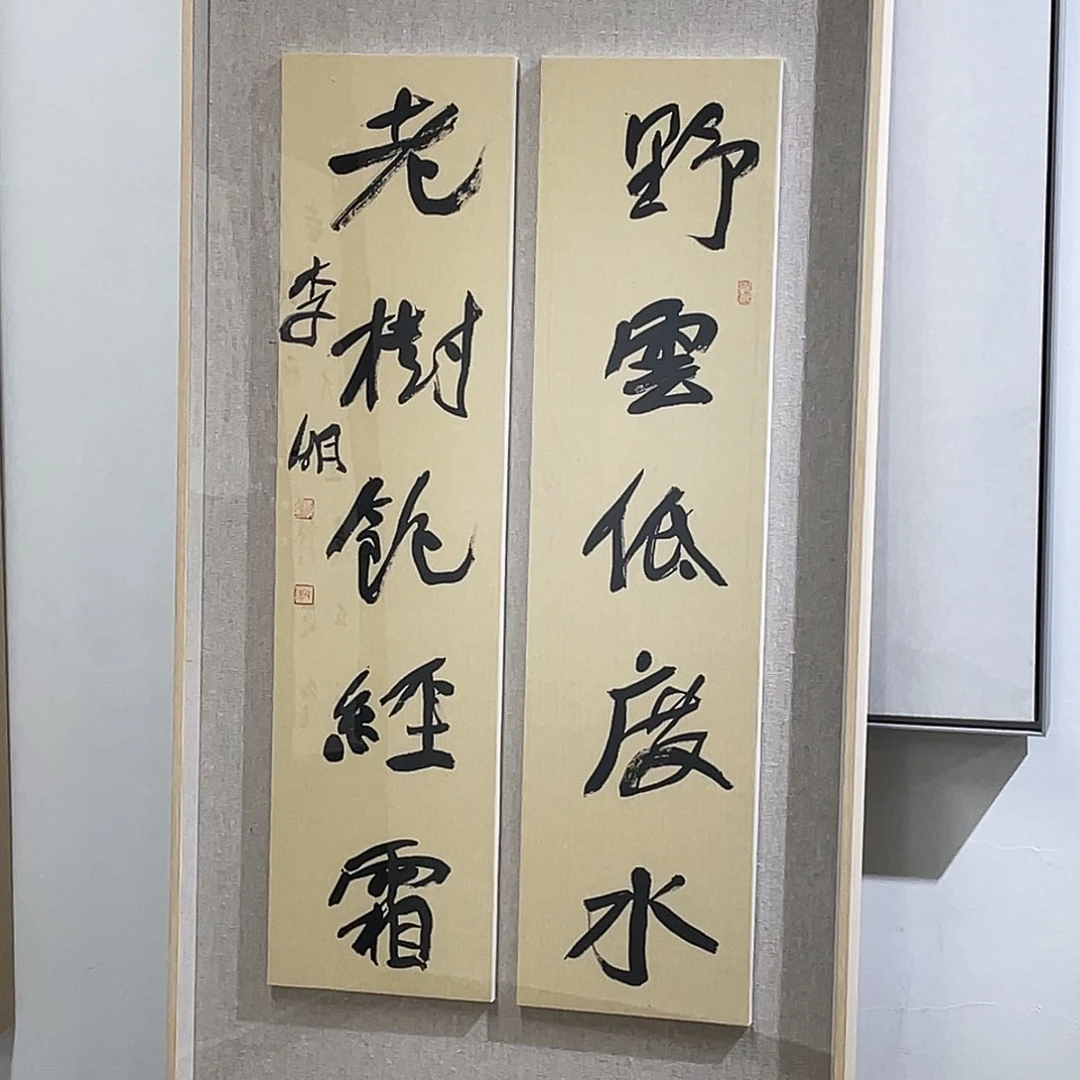 野雲低度水
老樹飽經霜
李明